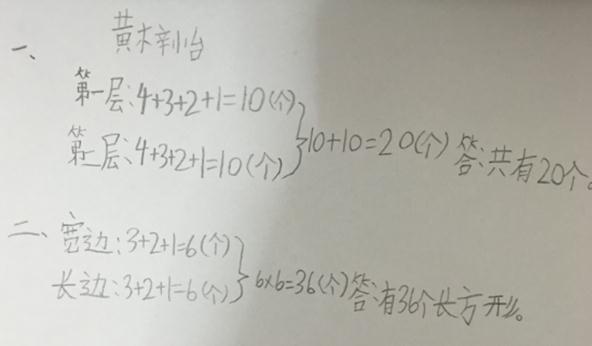 一、
第一层:4+3+2+1=10(个)
第二层:4+3+2+1=10(个)
10+10=20(个) 答:共有20个。
二、宽边:3+2+1=6(个)
长边:3+2+1=6(个)
6×6=36(个)答:有36个长方形。